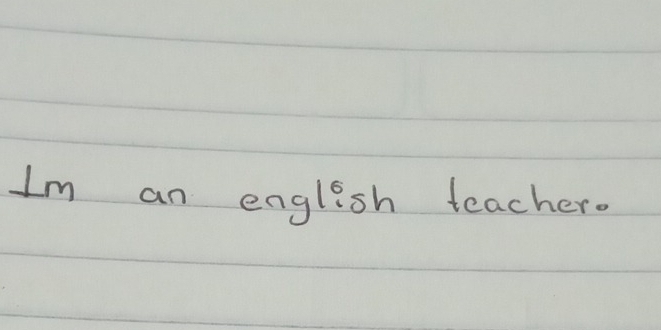 Im an english teacher.